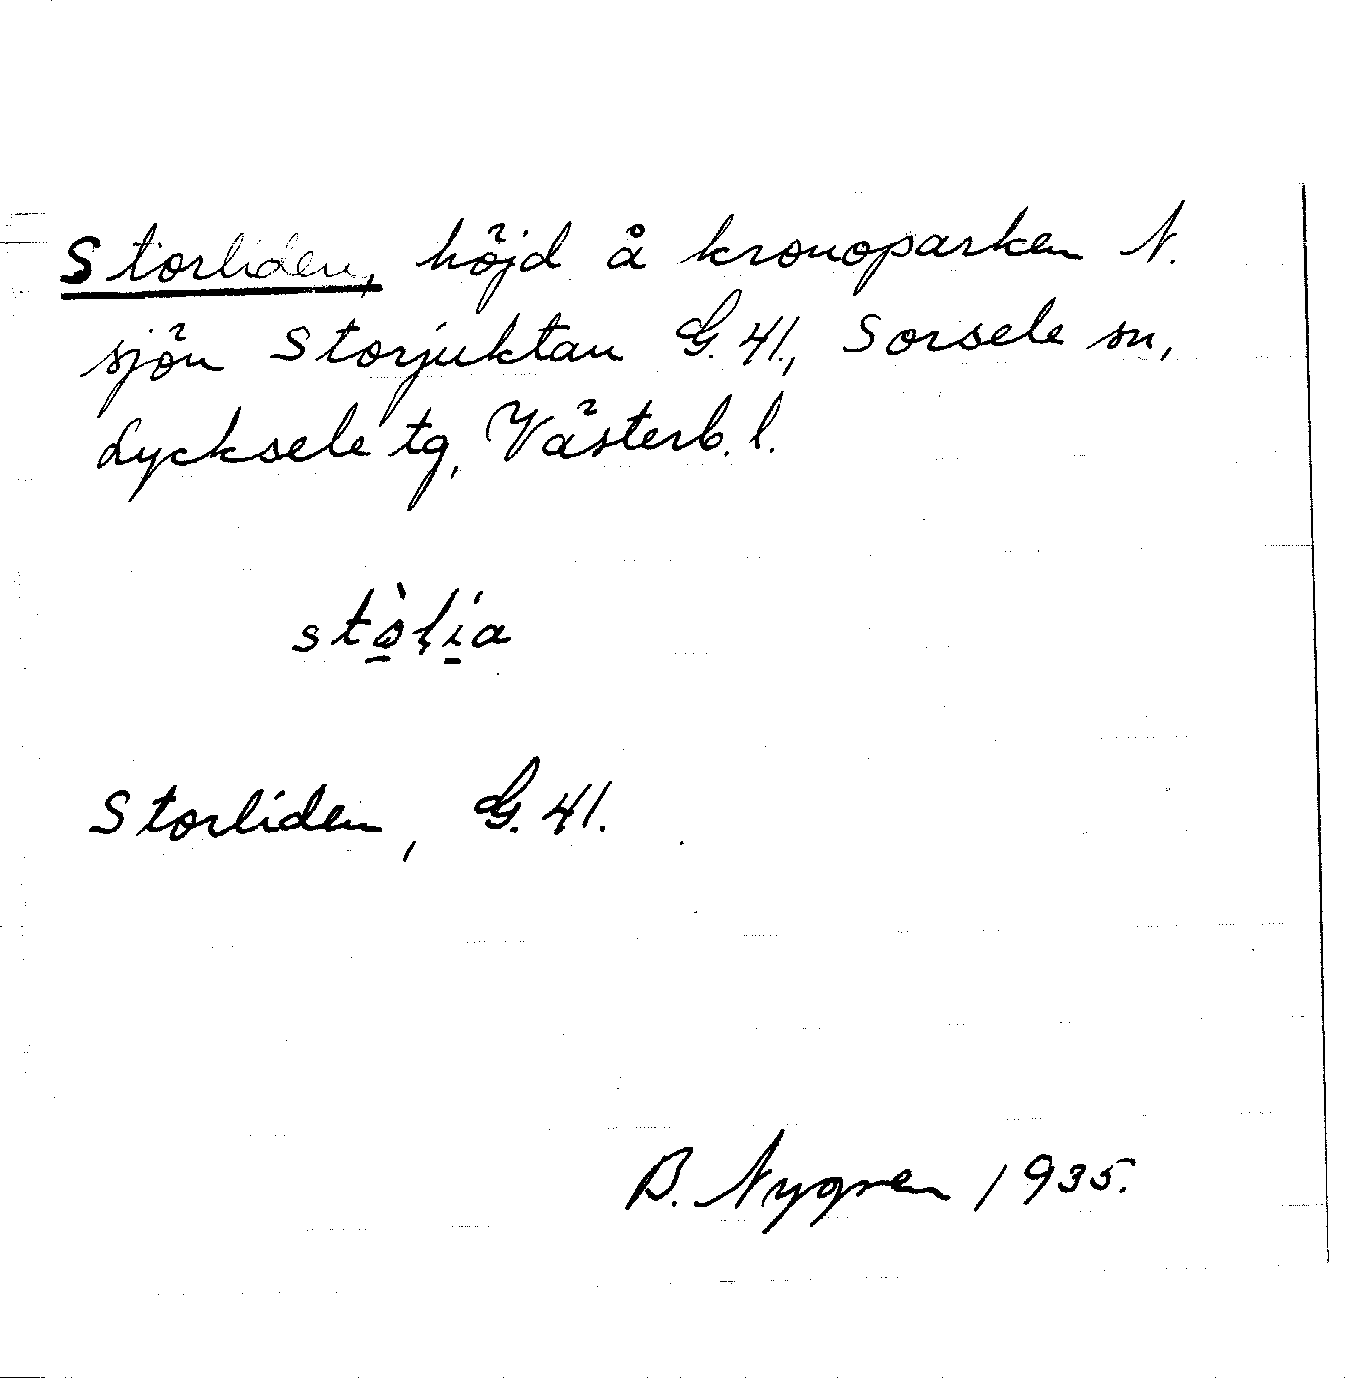 Storliden, höjd å kronoparken N.
sjön Storjuktan G. 41., Sorsele sn,
Lycksele tg, Västerb. l.
Storliden, G. 41.
B. Nygren 1935.